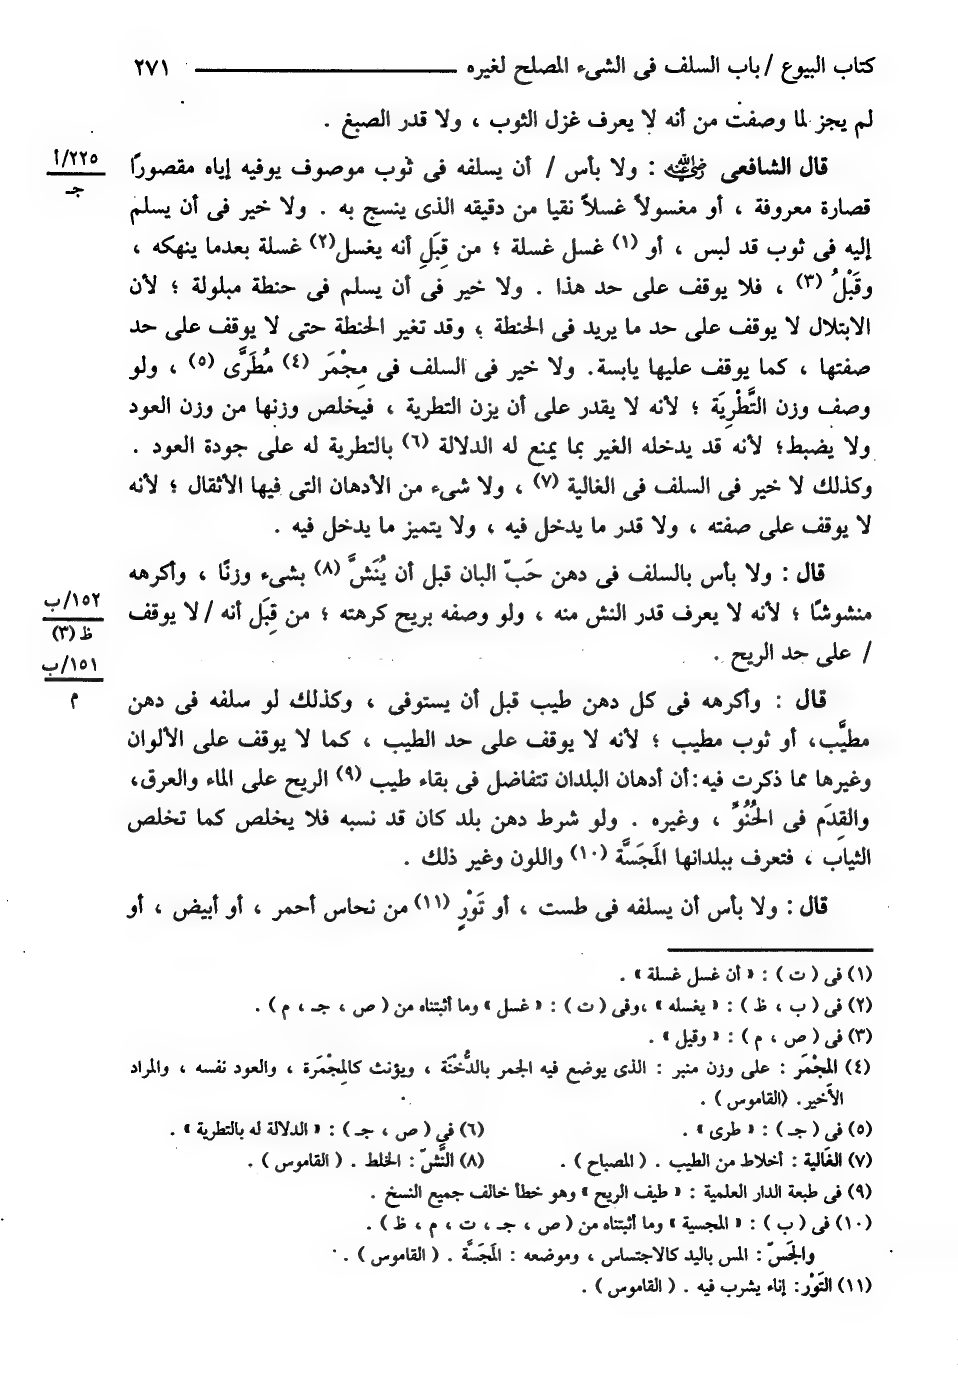 كتاب البيوع / باب السلف فى الشىء المصلح لغيره ــــــــــ ٢٧١
لم يجز لما وصفت من أنه لا يعرف غزل الثوب ، ولا قدر الصبغ .
قال الشافعى رضي الله عنه : ولا بأس / أن يسلفه فى ثوب موصوف يوفيه إياه مقصورًا
٢٢٥/أ
جـ
قصارة معروفة ، أو مغسولاً غسلاً نقيا من دقيقه الذى ينسج به . ولا خير فى أن يسلم
إليه فى ثوب قد لبس ، أو (١) غسل غسلة ؛ من قِبَلِ أنه يغسل(٢) غسلة بعدما ينهكه ،
وقَبْلُ (٣) ، فلا يوقف على حد هذا . ولا خير فى أن يسلم فى حنطة مبلولة ؛ لأن
الابتلال لا يوقف على حد ما يريد فى الحنطة ؛ وقد تغير الحنطة حتى لا يوقف على حد
صفتها ، كما يوقف عليها يابسة. ولا خير فى السلف فى مِجْمَر (٤) مُطَرًّى (٥) ، ولو
وصف وزن التَّطْرِيَة ؛ لأنه لا يقدر على أن يزن التطرية ، فيخلص وزنها من وزن العود
ولا يضبط؛ لأنه قد يدخله الغير بما يمنع له الدلالة (٦) بالتطرية له على جودة العود .
وكذلك لا خير فى السلف فى الغالية (٧) ، ولا شىء من الأدهان التى فيها الأثقال ؛ لأنه
لا يوقف على صفته ، ولا قدر ما يدخل فيه ، ولا يتميز ما يدخل فيه .
قال : ولا بأس بالسلف فى دهن حَبّ البان قبل أن يُنَشَّ (٨) بشىء وزنًا ، وأكرهه
منشوشًا ؛ لأنه لا يعرف قدر النش منه ، ولو وصفه بريح كرهته ؛ من قِبَل أنه / لا يوقف
١٥٢/ب
ظ (٣)
/ على حد الريح .
١٥١/ب
م
قال : وأكرهه فى كل دهن طيب قبل أن يستوفى ، وكذلك لو سلفه فى دهن
مطيَّب، أو ثوب مطيب ؛ لأنه لا يوقف على حد الطيب ، كما لا يوقف على الألوان
وغيرها مما ذكرت فيه:أن أدهان البلدان تتفاضل فى بقاء طيب (٩) الريح على الماء والعرق،
والقِدَم فى الحُنُوِّ ، وغيره . ولو شرط دهن بلد كان قد نسبه فلا يخلص كما تخلص
الثياب ، فتعرف ببلدانها المَجَسَّة (١٠) واللون وغير ذلك .
قال : ولا بأس أن يسلفه فى طست ، أو تَوْرٍ (١١) من نحاس أحمر ، أو أبيض ، أو
(١) فى ( ت ) : « أن غسل غسلة » .
(٢) فى ( ب ، ظ ) : « يغسله » ،وفى ( ت ) : « غسل » وما أثبتناه من ( ص ، جـ ، م ) .
(٣) فى ( ص ، م ) : « وقيل » .
(٤) المِجْمَر : على وزن منبر : الذى يوضع فيه الجمر بالدُّخْنَة ، ويؤنث كالمِجْمَرة ، والعود نفسه ، والمراد
الأخير. (القاموس ) .
(٥) فى ( جـ ) : « طرى » .
(٦) فى ( ص ، جـ ) : « الدلالة له بالتطرية » .
(٧) الغَالية : أخلاط من الطيب . ( المصباح ) .
(٨) النَّشّ : الخلط . ( القاموس ) .
(٩) فى طبعة الدار العلمية : « طيف الريح » وهو خطأ خالف جميع النسخ .
(١٠) فى ( ب ) : « المجسية » وما أثبتناه من ( ص ، جـ ، ت ، م ، ظ ) .
والجَسّ : المس باليد كالاجتساس ، وموضعه : المَجَسَّة . ( القاموس ) .
(١١) التَوْر: إناء يشرب فيه . ( القاموس ) .